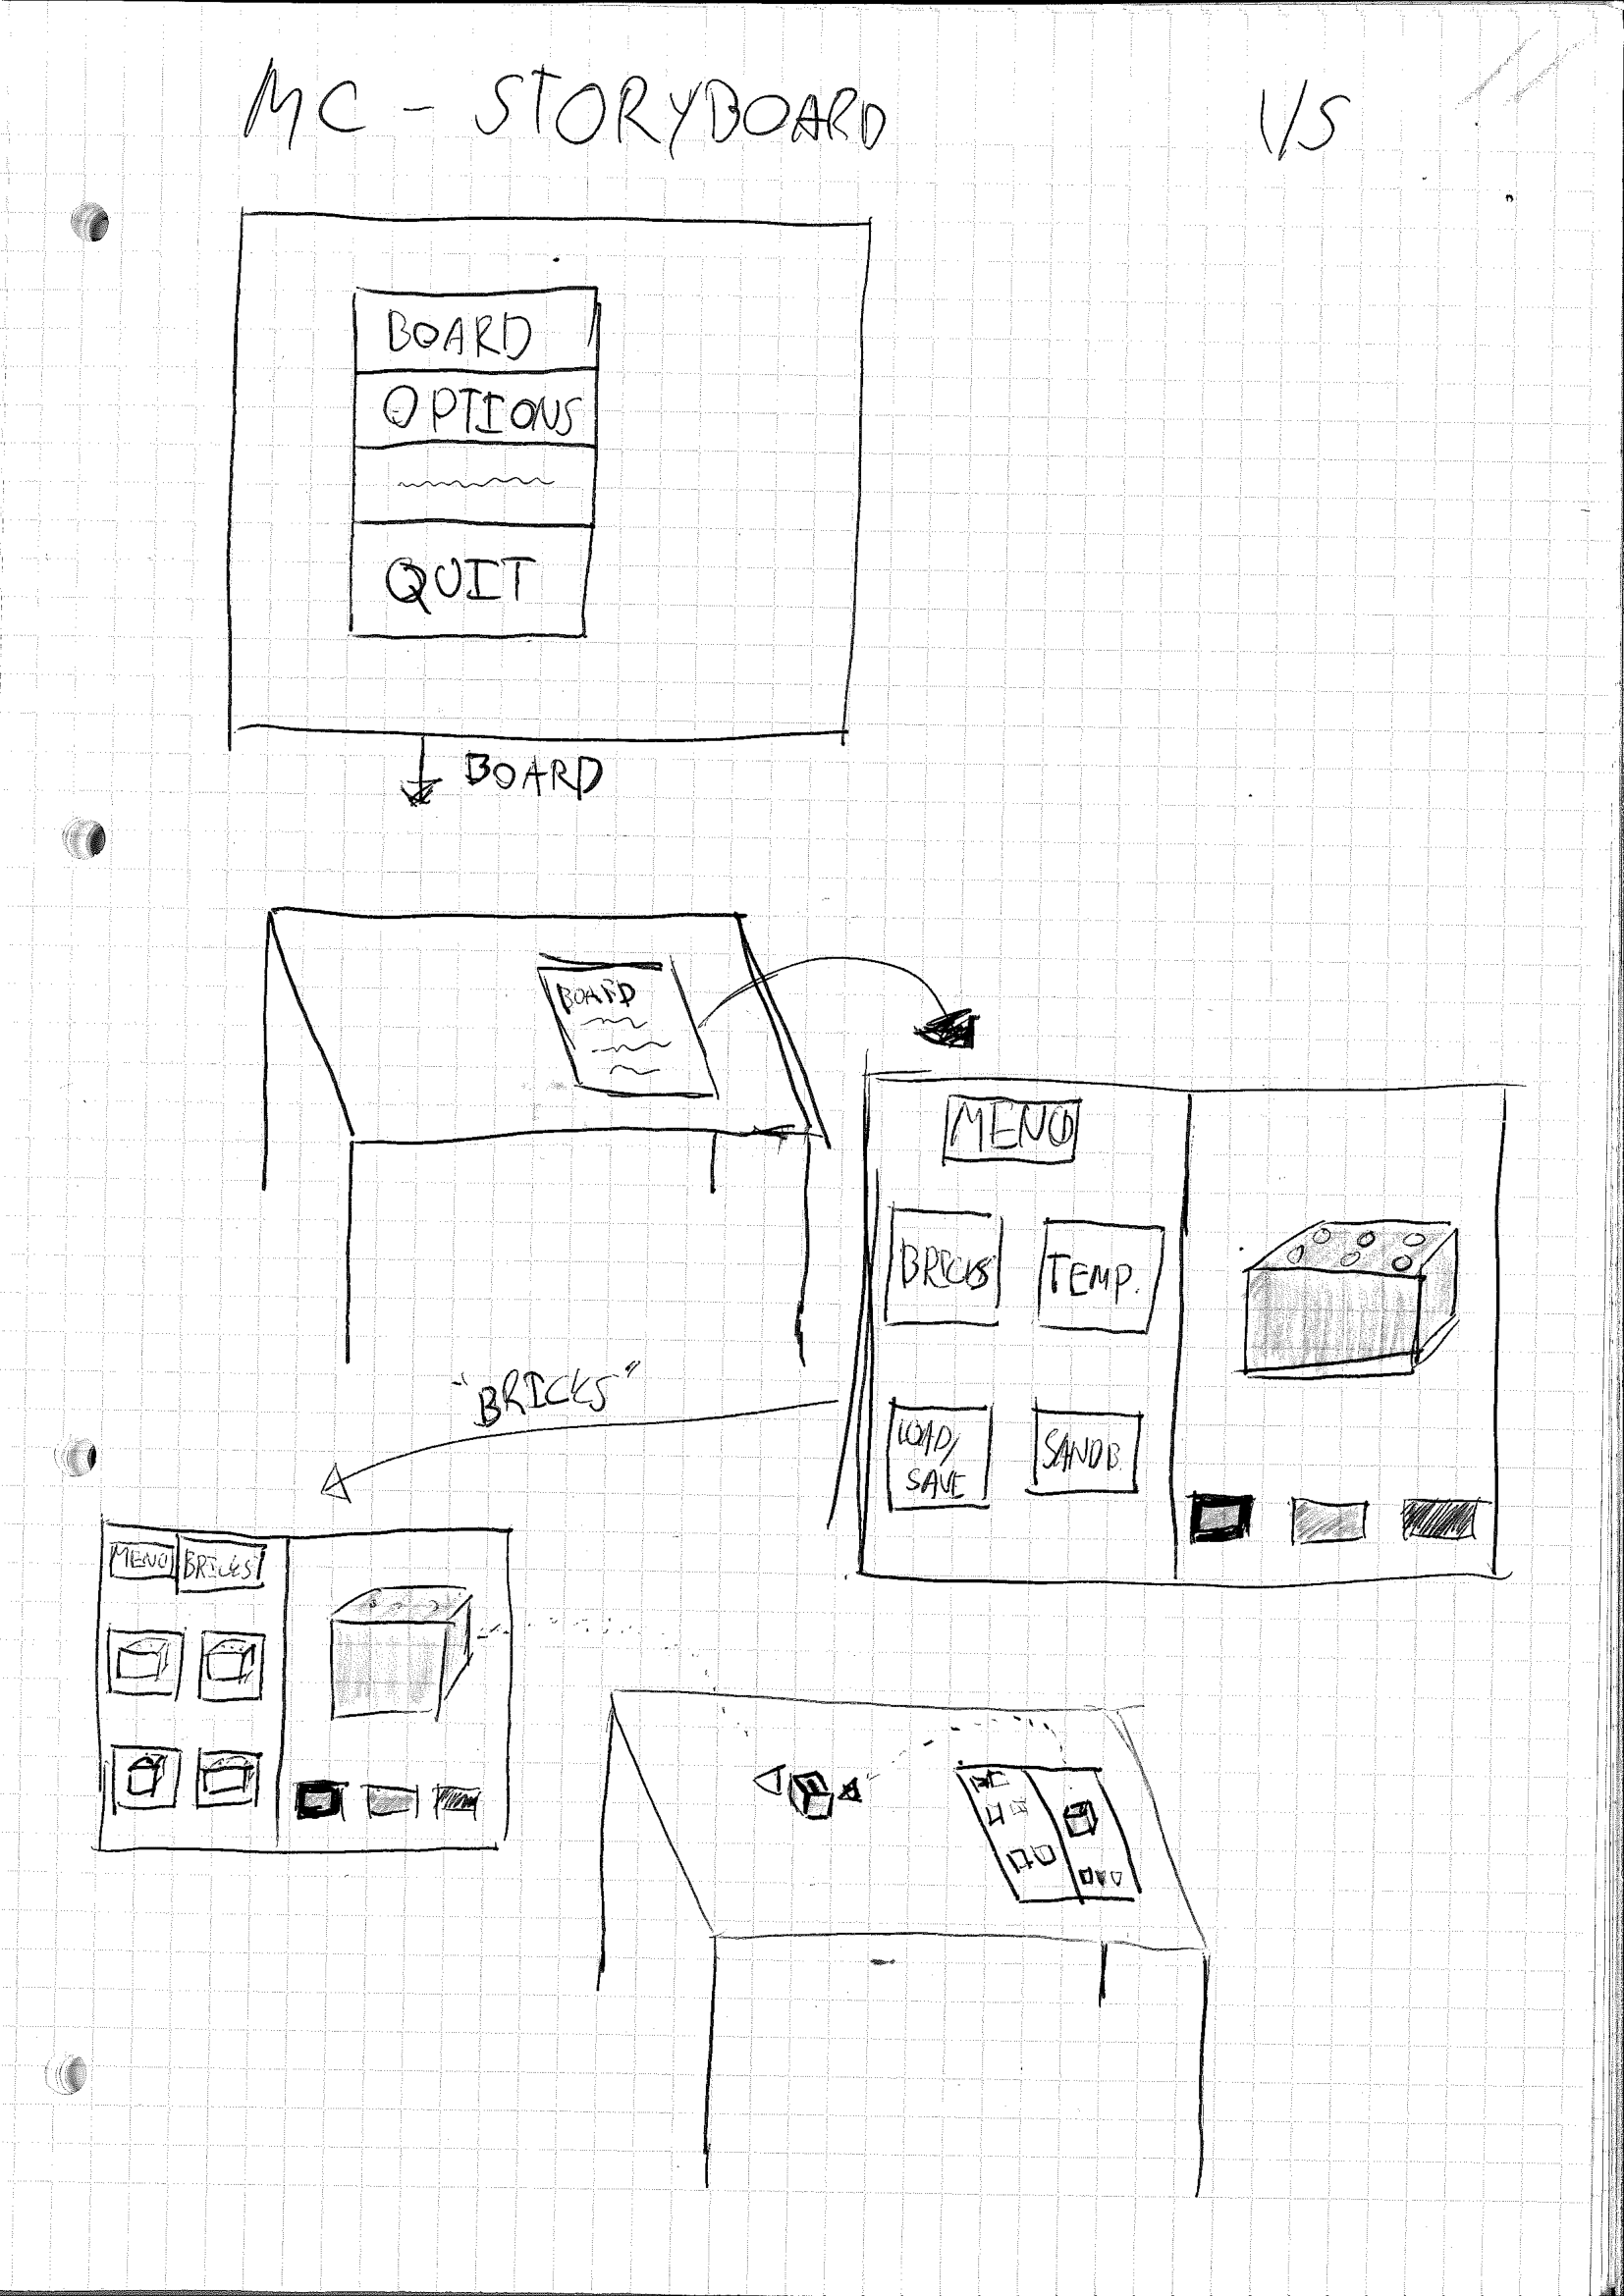 MC - STORYBOARD 1/5
BOARD
OPTIONS
QUIT
BOARD
BOARD
MENU
BRICKS
TEMP.
LOAD/
SAVE
SANDB.
"BRICKS"
MENU BRICKS